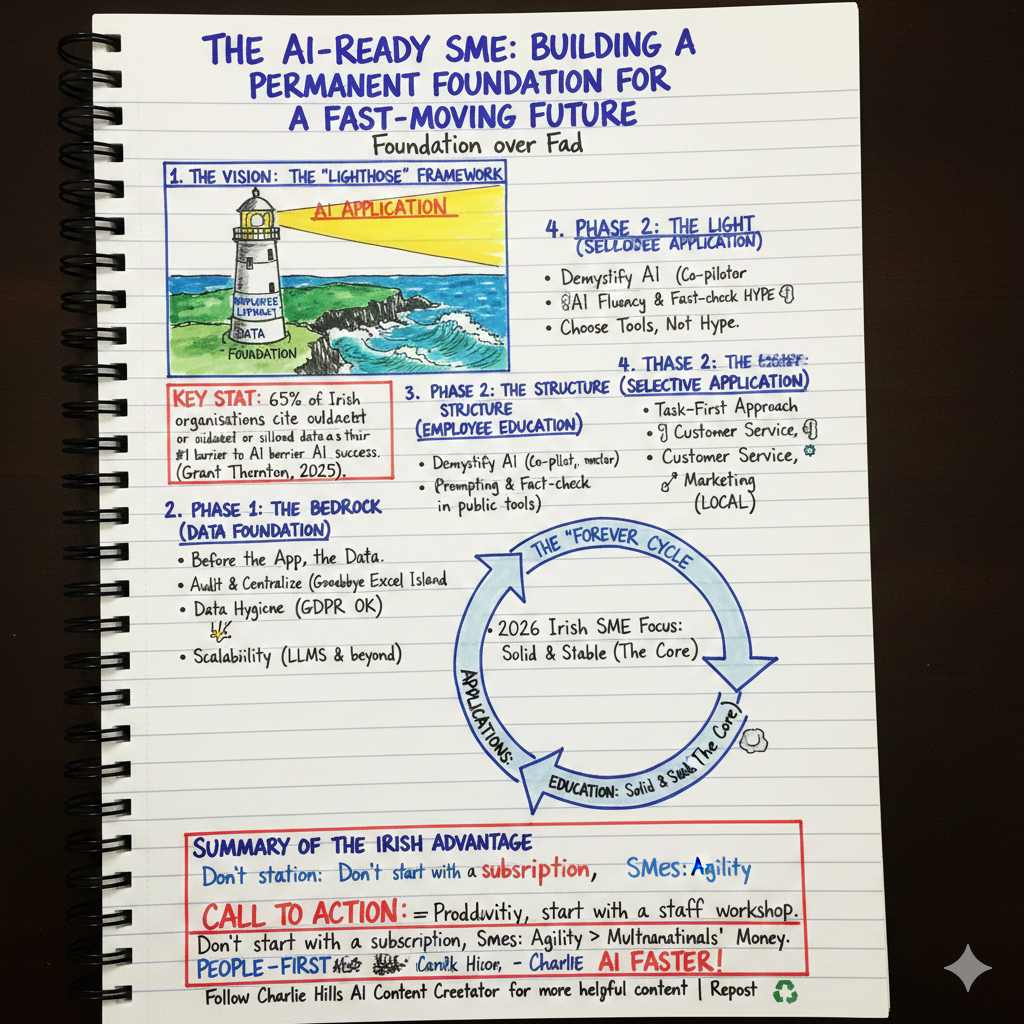 THE AI-READY SME: BUILDING A
PERMANENT FOUNDATION FOR
A FAST-MOVING FUTURE
Foundation over Fad
1. THE VISION: THE "LIGHTHOSE" FRAMEWORK
AI APPLICATION
DATA
FOUNDATION
KEY STAT: 65% of Irish
organisations cite
or or data as
#1 to AI AI success.
(Grant Thernton, 2025).
2. PHASE 1: THE BEDROCK
(DATA FOUNDATION)
• Before the App, the Data.
• Audit & Centralize (Goodbye Excel Island
• Data Hygiene (GDPR OK)
• Scalability (LLMS & beyond)
3. PHASE 2: THE STRUCTURE
STRUCTURE
(EMPLOYEE EDUCATION)
• Demystify AI (Co-pilat,
• Prempting & Fact-check
in public tools)
4. PHASE 2: THE LIGHT
APPLICATION)
• Demystify AI (Co-piloter
• AI Fluency & Fast-check HYPE
• Choose Tools, Not Hype.
4. THASE 2: THE
(SELECTIVE APPLICATION)
• Task-First Approach
• Customer Service,
• Customer Service,
Marketing
(LOCAL)
THE "FOREVER CYCLE
• 2026 Irish SME Focus:
Solid & Stable (The Core)
APPLICATIONS:
EDUCATION: Solid & The Core)
SUMMARY OF THE IRISH ADVANTAGE
Don't station: Don't start with a subsription, SMes: Agility
CALL TO ACTION: = Proddvitiy, start with a staff workshop.
Don't start with a subscription, Smes: Agility > Multnanatinals' Money.
PEOPLE-FIRST - Charlie AI FASTER!
Follow Charlie Hills AI Content Creetator for more helgful content | Repost